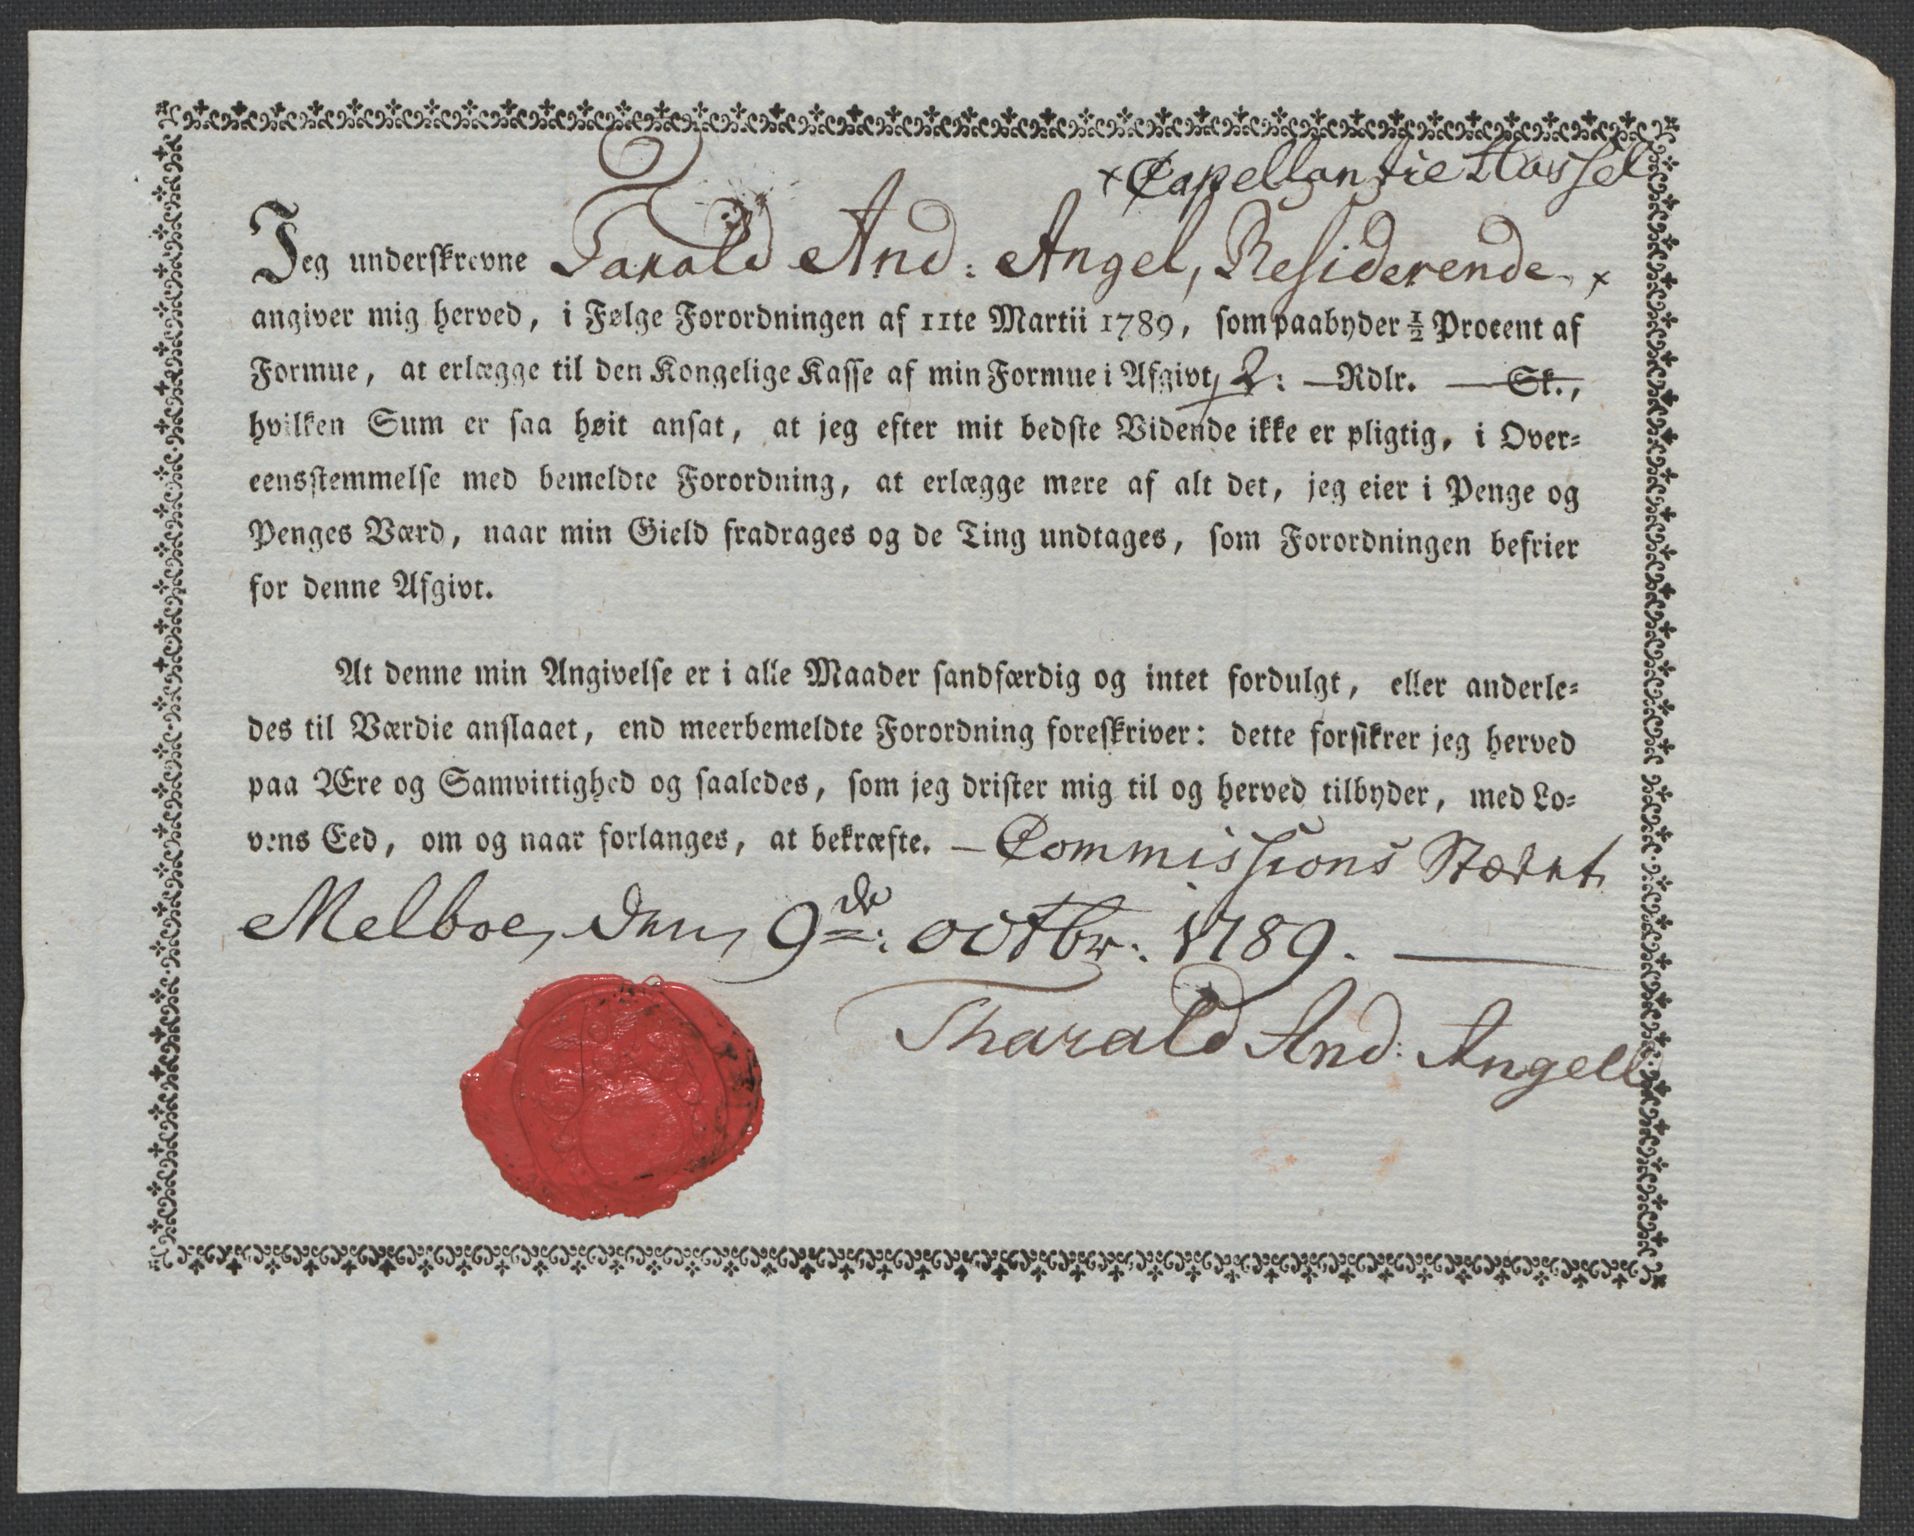 × Capellan tie Hassel
Jeg underskrevne Tarald And: Angel, Residerende ×
angiver mig herved, i Følge Forordningen af 11te Martii 1789, som paabyder ½ Procent af
Formue, at erlægge til den Kongelige Kasse af min Formue i Afgivt, 2: — Rdlr. — Sk.,
hvilken Sum er saa høit ansat, at jeg efter mit bedste Vidende ikke er pligtig, i Over=
eensstemmelse med bemeldte Forordning, at erlægge mere af alt det, jeg eier i Penge og
Penges Værd, naar min Gield fradrages og de Ting undtages, som Forordningen befrier
for denne Afgivt.
At denne min Angivelse er i alle Maader sandfærdig og intet fordulgt, eller anderle=
des til Værdie anslaaet, end meerbemeldte Forordning foreskriver: dette forsikrer jeg herved
paa Ære og Samvittighed og saaledes, som jeg drister mig til og herved tilbyder, med Lo=
vens Eed, om og naar forlanges, at bekræfte. — Commissions
Melboe, den 9de: octbr: 1789. —
Tharald And: Angell